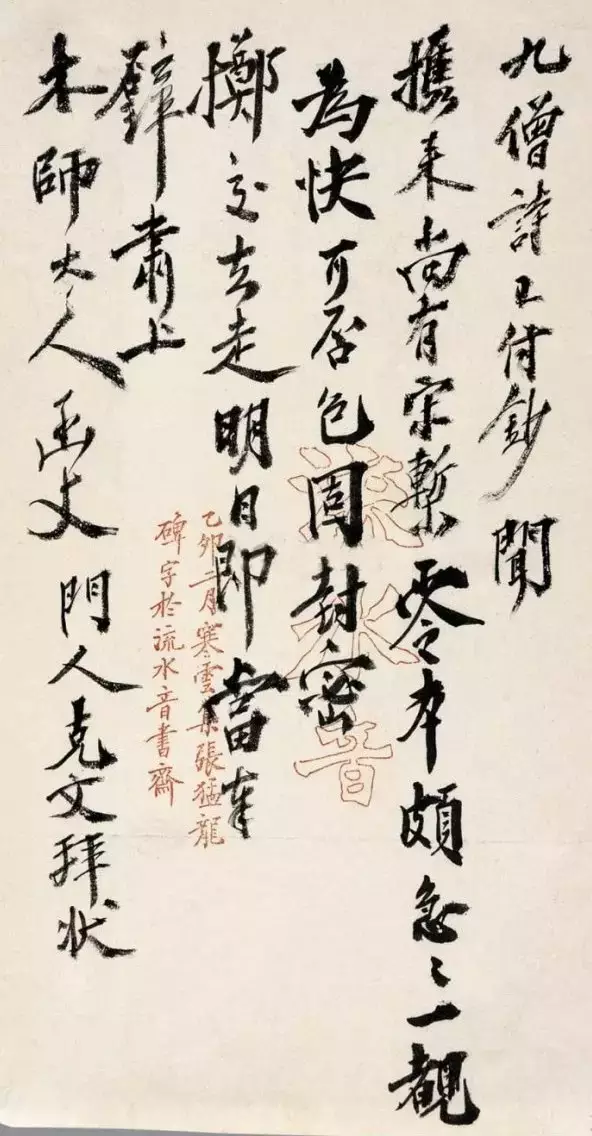 九僧詩已付鈔聞
攜来尚有宋槧零本頗急々一覩
為快可否包固封密
擲交去走明日即當奉
璧肅上
木師大人函丈 門人克文拜状
流水音
乙卯二月寒雲集張猛龍
碑字於流水音書齋